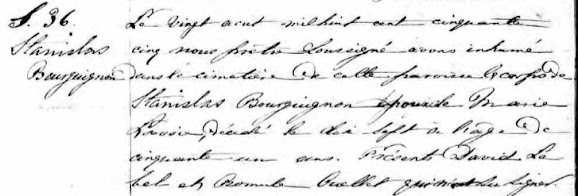 S. 36.
Stanislas
Bourguignon
Le vingt aout mil huit cent cinquante
cinq nous prêtre soussigné avons inhumé
dans le cimetière de cette paroisse le corps de
Stanislas Bourguignon époux de Marie
Lavoie, décédé le dix sept à l'age de
cinquante un ans. Présents David Le
bel et Romule Ouellet qui n'ont su signer.